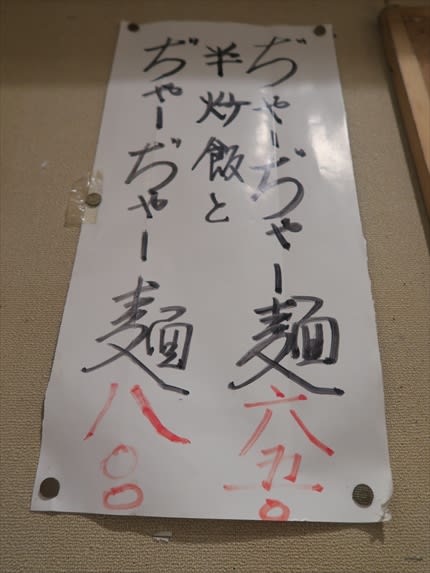 ぢゃーぢゃー麺 六五〇
半炒飯と
ぢゃーぢゃー麺 八〇〇